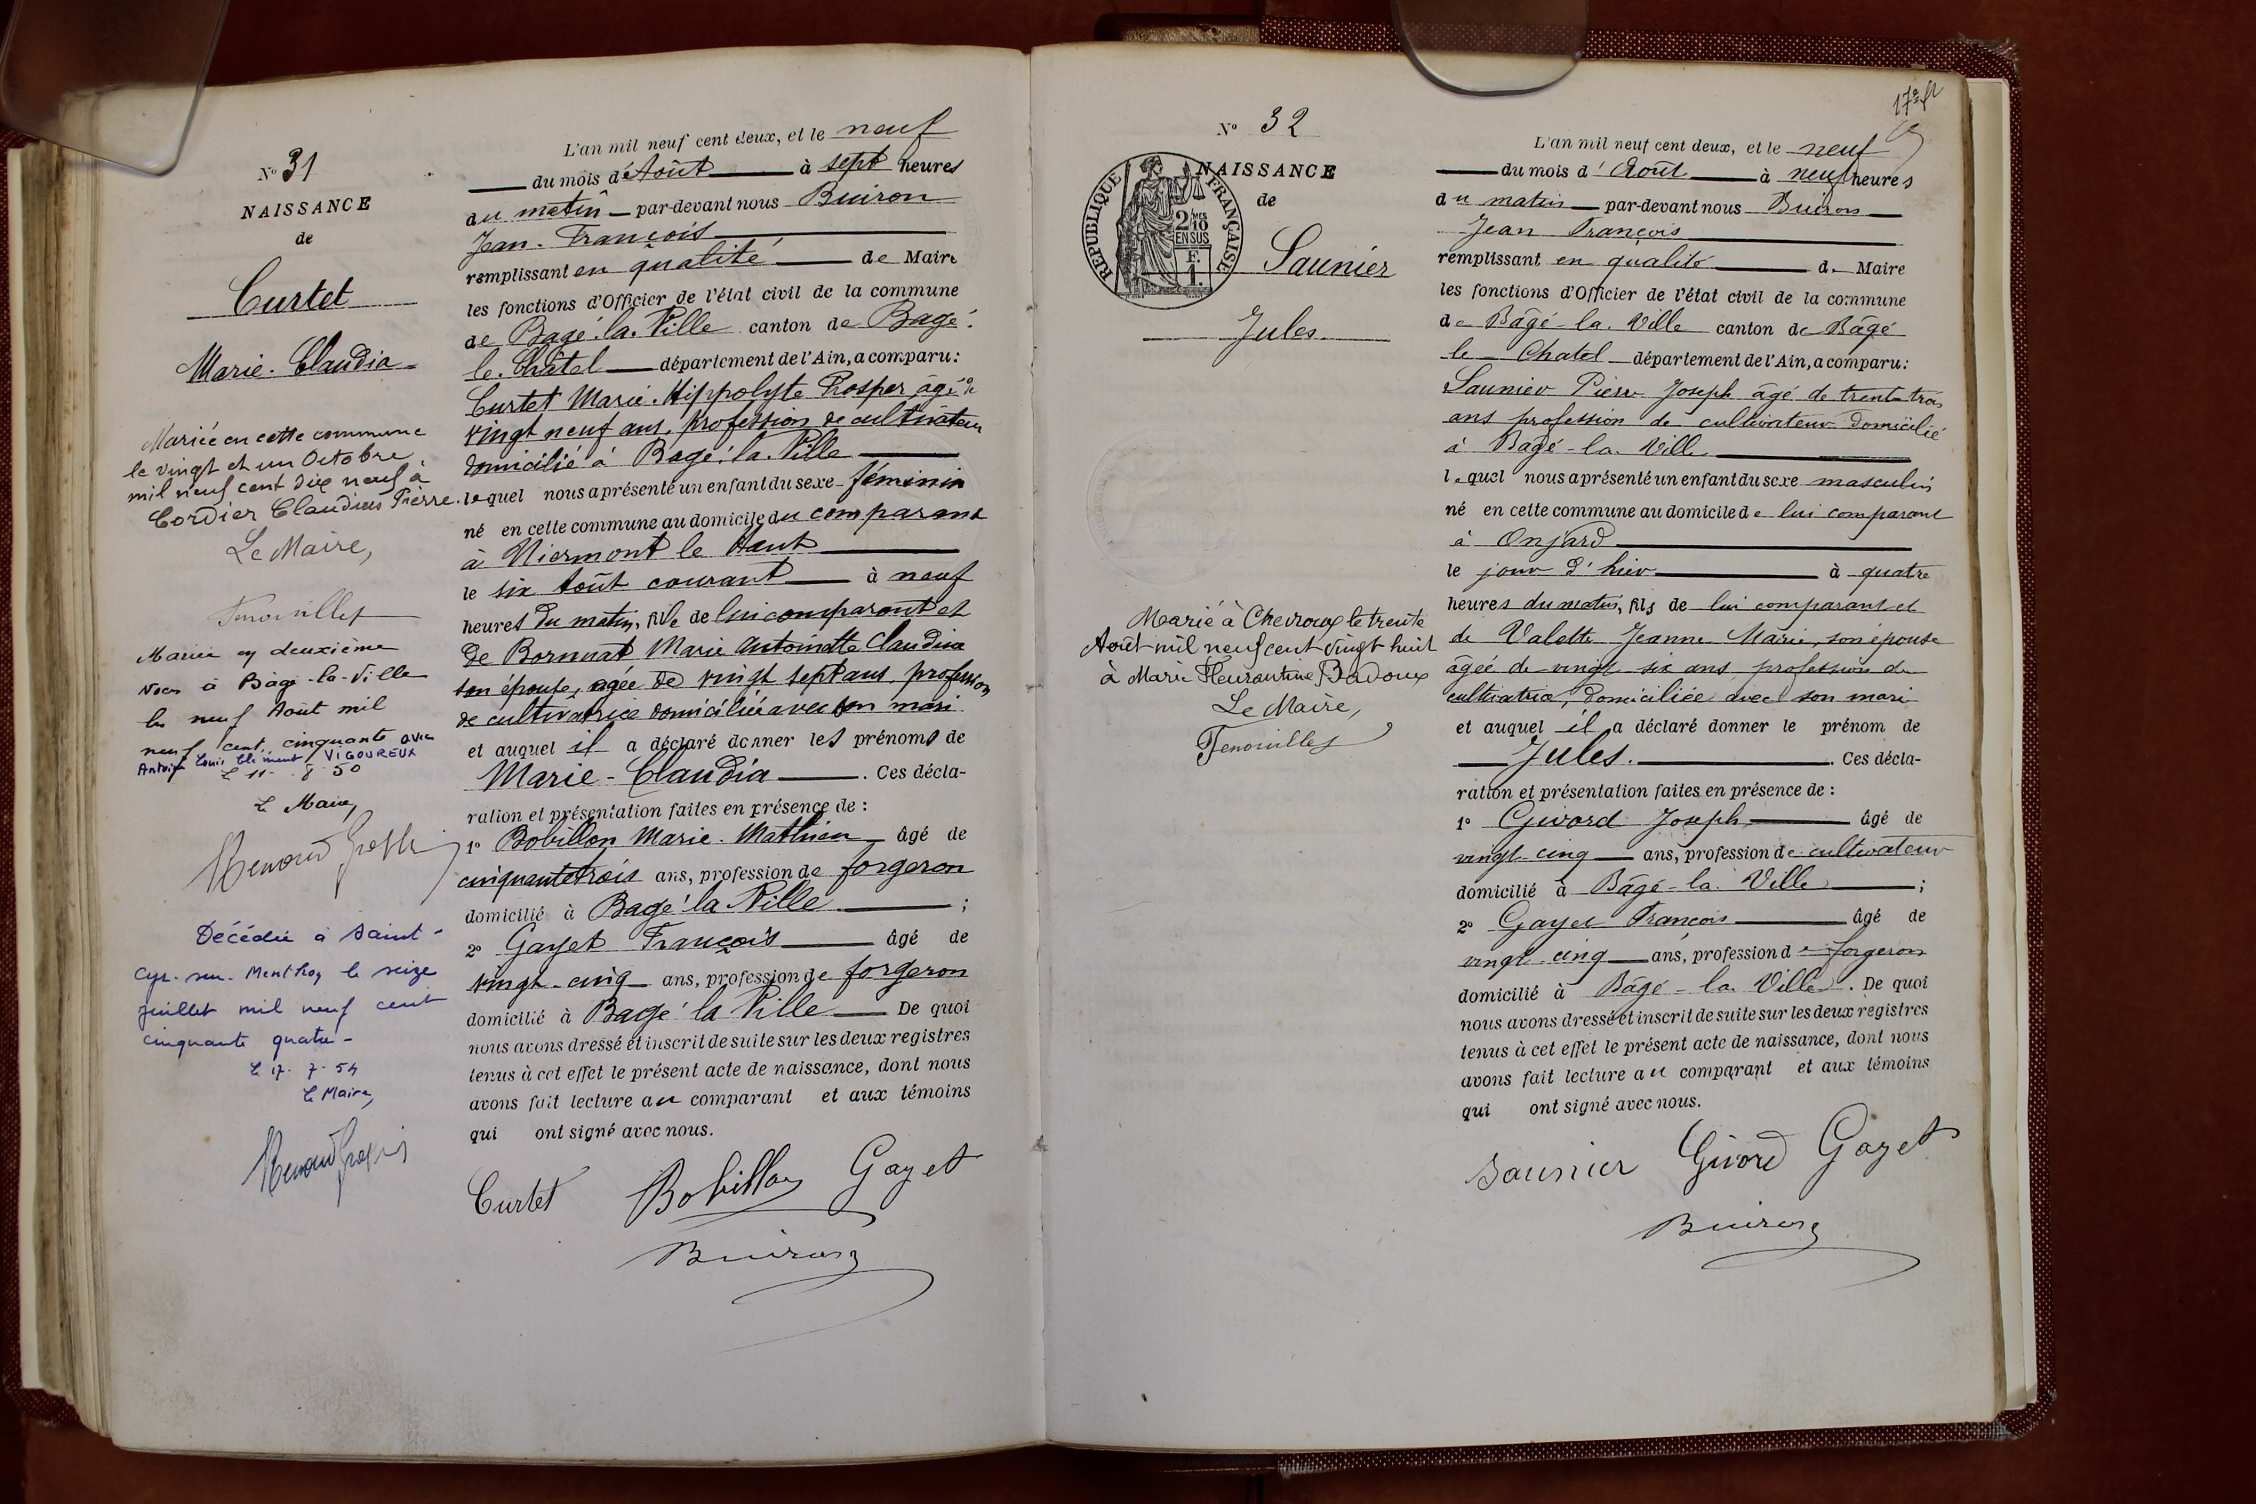 N° 31
NAISSANCE
de
Curtet
Marie-Claudia
Mariée en cette commune
le vingt et un Octobre
mil neuf cent dix neuf à
Cordier Claudius Pierre.
Le Maire,
Mariée en deuxième
Noces à Bâgé-la-Ville
le neuf Août mil
neuf cent cinquante avec
Antoine Louis Clément VIGOUREUX
Le 11 - 8 - 50
Le Maire,
Décédée à Saint-
Cyr-sur-Menthon le seize
juillet mil neuf cent
cinquante quatre -
Le 17 - 7 - 54
Le Maire,
L'an mil neuf cent deux, et le neuf
du mois d'Août à sept heures
du matin par-devant nous Buiron
Jean-François
remplissant en qualité de Maire
les fonctions d'Officier de l'état civil de la commune
de Bagé-la-Ville canton de Bagé-
le-Châtel département de l'Ain, a comparu:
Curtet Marie-Hippolyte Prosper âgé de
vingt neuf ans, profession de cultivateur
domicilié à Bagé-la-Ville
lequel nous a présenté un enfant du sexe féminin
né en cette commune au domicile du comparant
à Niermont le Haut
le six Août courant à neuf
heures du matin, fille de lui comparant et
de Bornnat Marie Antoinette Claudine
son épouse, agée de vingt sept ans, profession
de cultivatrice domiciliée avec son mari
et auquel il a déclaré donner les prénoms de
Marie-Claudia. Ces décla-
ration et présentation faites en présence de :
1° Bobillon Marie-Mathieu âgé de
cinquante trois ans, profession de forgeron
domicilié à Bagé-la Ville ;
2° Gayet François âgé de
vingt-cinq ans, profession de forgeron
domicilié à Bagé-la Ville De quoi
nous avons dressé et inscrit de suite sur les deux registres
tenus à cet effet le présent acte de naissance, dont nous
avons fait lecture au comparant et aux témoins
qui ont signé avec nous.
Curtet Bobillon Gayet
Buiron
17e ft
N° 32
NAISSANCE
de
REPUBLIQUE FRANÇAISE
2/10 MES
EN SUS
F.
1.
Saunier
Jules
Marié à Chevroux le trente
Août mil neuf cent vingt huit
à Marie Fleurantine Badoux
Le Maire,
L'an mil neuf cent deux, et le neuf
du mois d'Août à neuf heures
du matin par-devant nous Buiron
Jean François
remplissant en qualité de Maire
les fonctions d'Officier de l'état civil de la commune
de Bâgé-la-Ville canton de Bâgé
le Chatel département de l'Ain, a comparu:
Saunier Pierre Joseph âgé de trente trois
ans profession de cultivateur domicilié
à Bagé-la-Ville
lequel nous a présenté un enfant du sexe masculin
né en cette commune au domicile de lui comparant
à Onjard
le jour d'hier à quatre
heures du matin, fils de lui comparant et
de Valette Jeanne Marie, son épouse
âgée de vingt six ans, profession de
cultivatrice, domiciliée avec son mari
et auquel il a déclaré donner le prénom de
Jules. Ces décla-
ration et présentation faites en présence de :
1° Givord Joseph âgé de
vingt-cinq ans, profession de cultivateur
domicilié à Bâgé-la-Ville ;
2° Gayet François âgé de
vingt-cinq ans, profession de forgeron
domicilié à Bâgé-la-Ville. De quoi
nous avons dressé et inscrit de suite sur les deux registres
tenus à cet effet le présent acte de naissance, dont nous
avons fait lecture au comparant et aux témoins
qui ont signé avec nous.
Saunier Givord Gayet
Buiron